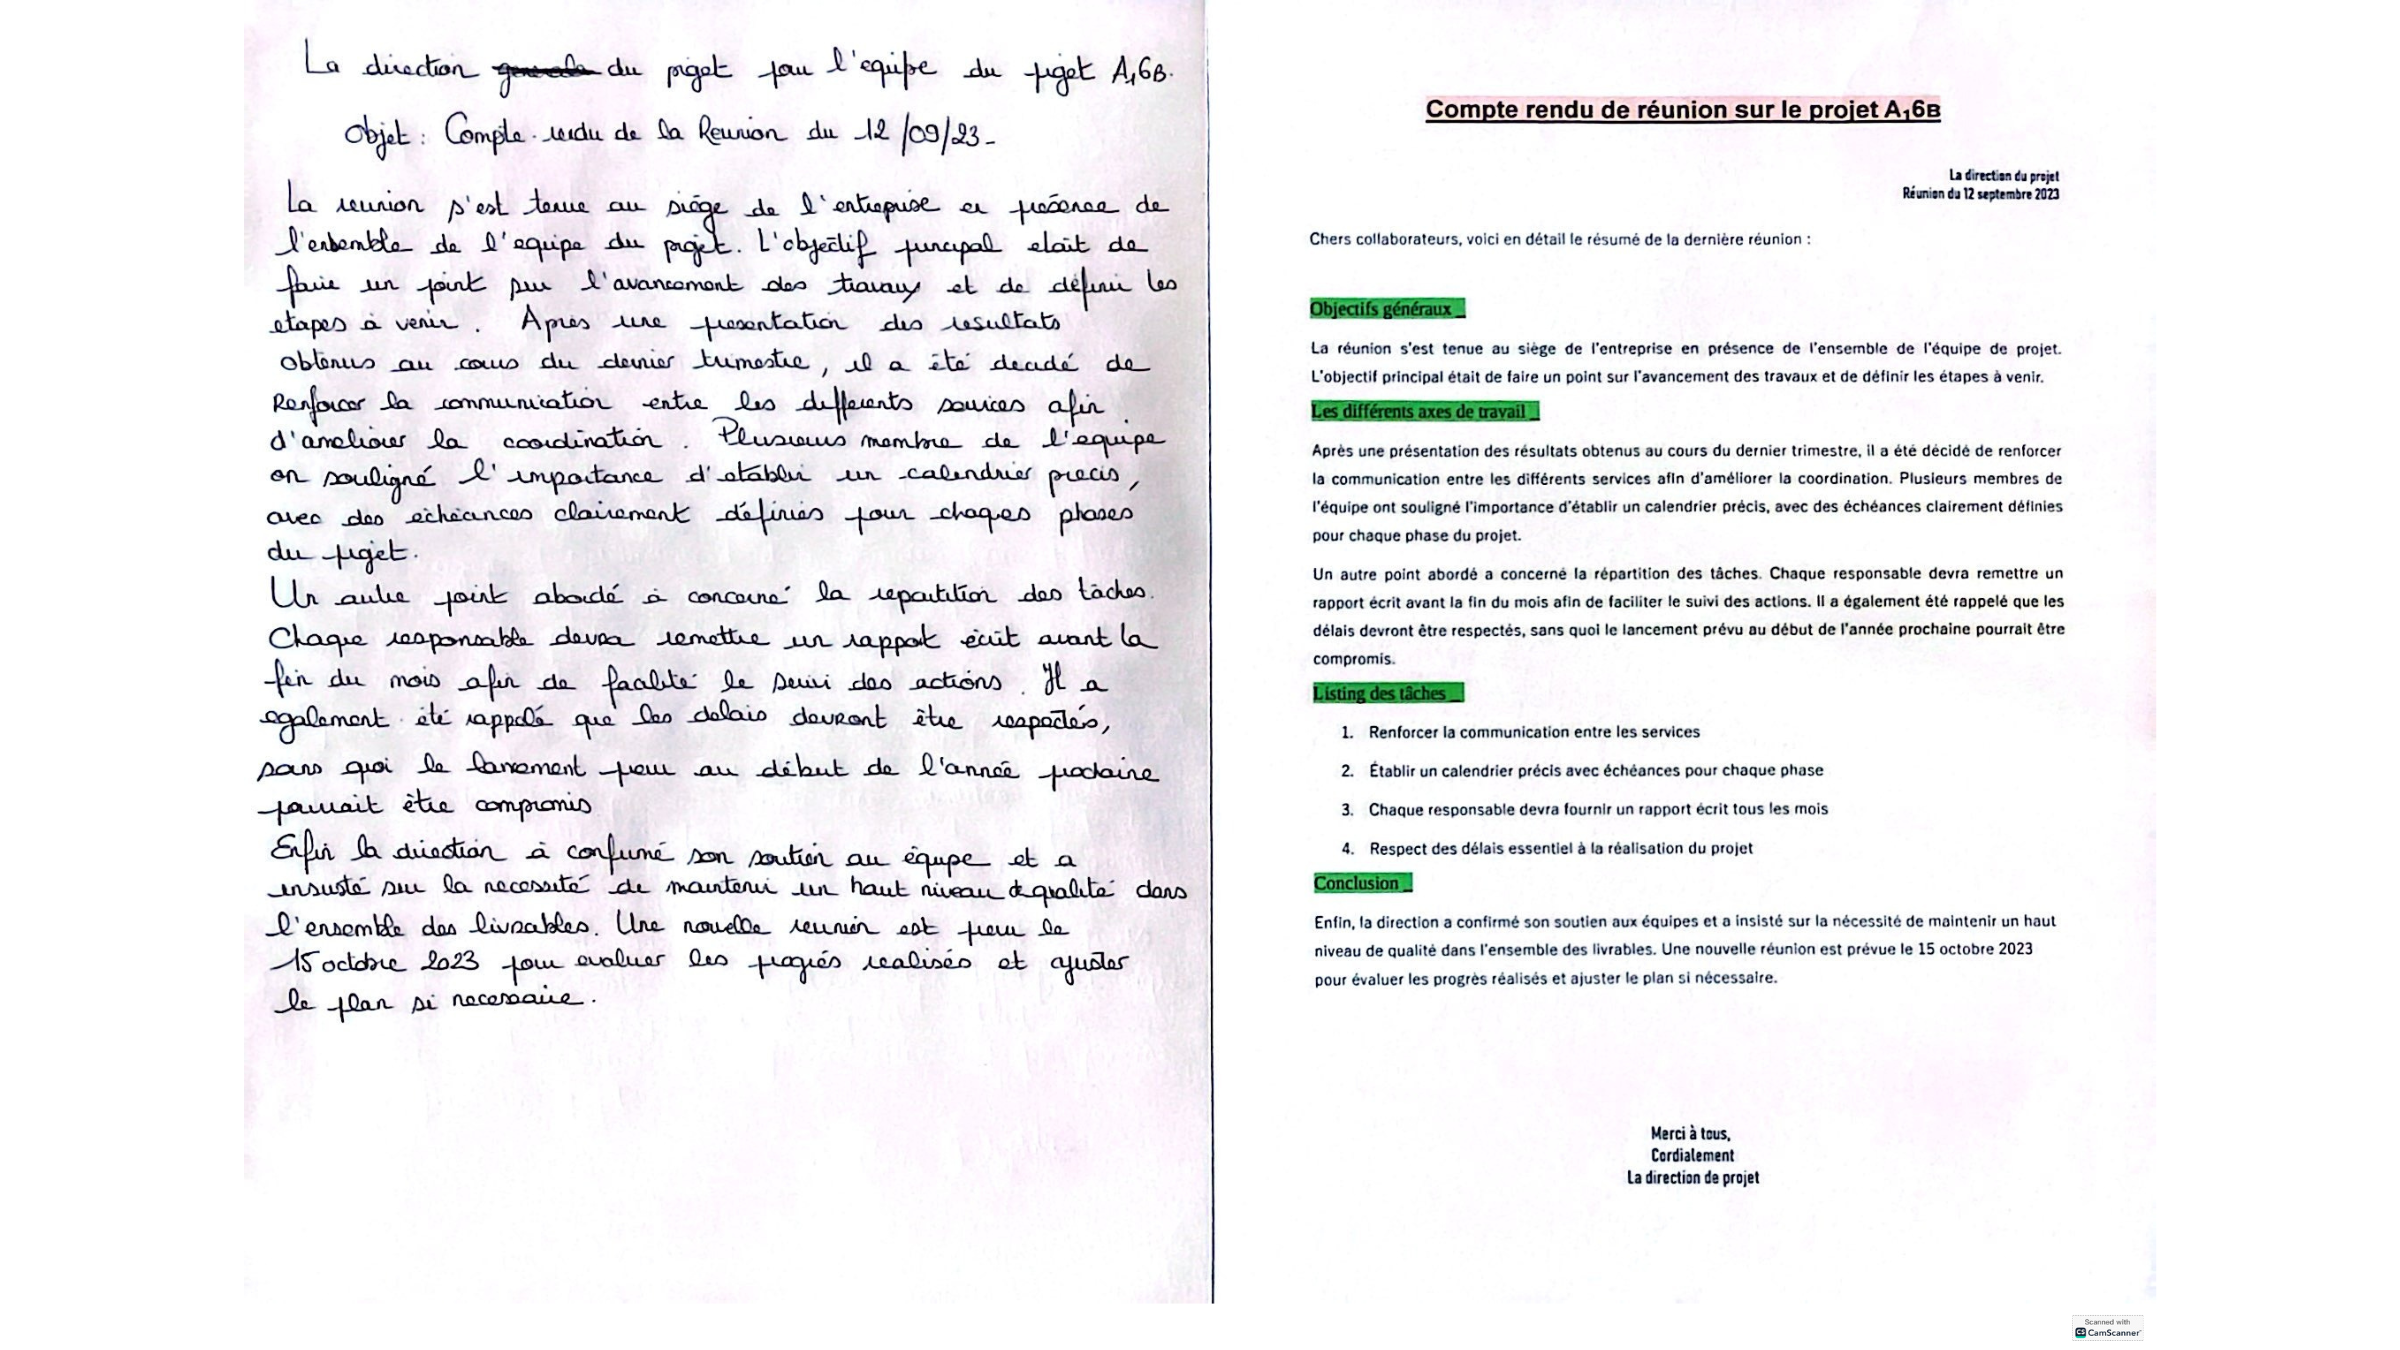 La direction du projet pour l'équipe du projet A₁6B.
Objet : Compte-rendu de la Reunion du 12/09/23-
La reunion s'est tenue au siège de l'entreprise en présence de
l'ensemble de l'equipe du projet. L'objectif principal etait de
faire un point sur l'avancement des travaux et de définir les
etapes à venir. Apres une presentation des resultats
obtenus au cours du dernier trimestre, il a été decidé de
Renforcer la communication entre les differents services afin
d'ameliorer la coordination. Plusieurs membre de l'equipe
on souligné l'importance d'etablir un calendrier precis,
avec des echéances clairement définies pour chaques phases
du projet.
Un autre point abordé à concerné la repartition des tâches.
Chaque responsable devra remettre un rapport écrit avant la
fin du mois afin de facilité le suivi des actions. Il a
egalement été rappelé que les delais devront être respectés,
sans quoi le lancement prevu au début de l'année prochaine
pourrait être compromis
Enfin la direction à confirmé son soutien au équipe et a
insisté sur la necessité de maintenir un haut niveau de qualité dans
l'ensemble des livrables. Une nouvelle reunion est prevu le
15 octobre 2023 pour evaluer les progrés realisés et ajuster
le plan si necessaire.
Compte rendu de réunion sur le projet A₁6B
La direction du projet
Réunion du 12 septembre 2023
Chers collaborateurs, voici en détail le résumé de la dernière réunion :
Objectifs généraux _
La réunion s'est tenue au siège de l'entreprise en présence de l'ensemble de l'équipe de projet.
L'objectif principal était de faire un point sur l'avancement des travaux et de définir les étapes à venir.
Les différents axes de travail _
Après une présentation des résultats obtenus au cours du dernier trimestre, il a été décidé de renforcer
la communication entre les différents services afin d'améliorer la coordination. Plusieurs membres de
l'équipe ont souligné l'importance d'établir un calendrier précis, avec des échéances clairement définies
pour chaque phase du projet.
Un autre point abordé a concerné la répartition des tâches. Chaque responsable devra remettre un
rapport écrit avant la fin du mois afin de faciliter le suivi des actions. Il a également été rappelé que les
délais devront être respectés, sans quoi le lancement prévu au début de l'année prochaine pourrait être
compromis.
Listing des tâches _
1. Renforcer la communication entre les services
2. Établir un calendrier précis avec échéances pour chaque phase
3. Chaque responsable devra fournir un rapport écrit tous les mois
4. Respect des délais essentiel à la réalisation du projet
Conclusion _
Enfin, la direction a confirmé son soutien aux équipes et a insisté sur la nécessité de maintenir un haut
niveau de qualité dans l'ensemble des livrables. Une nouvelle réunion est prévue le 15 octobre 2023
pour évaluer les progrès réalisés et ajuster le plan si nécessaire.
Merci à tous,
Cordialement
La direction de projet
Scanned with
CS CamScanner